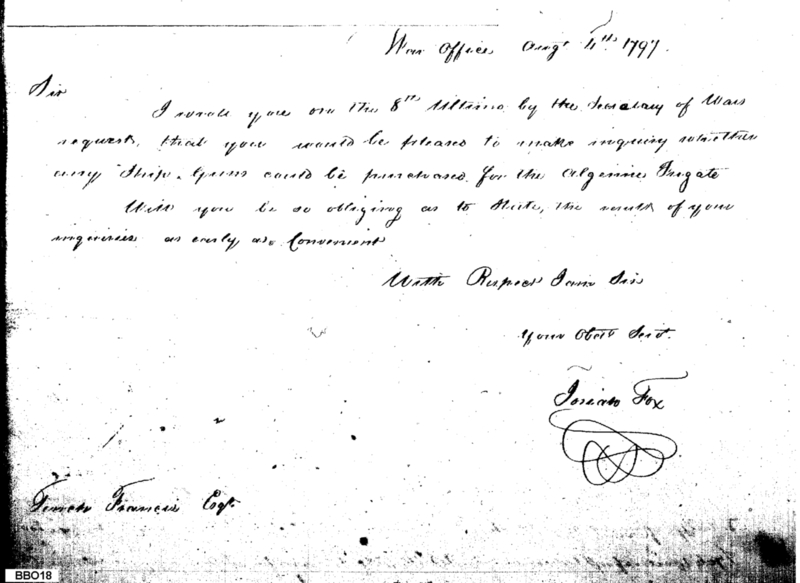 War Office Augt 4th 1797.
Sir
I wrote you on the 8th Ultimo by the Secretary of Wars
request, that you would be pleased to make inquiry whether
any Ship Guns could be purchased for the Algerine Frigate
Will you be so obliging as to state, the result of your
inquiries as early as Convenient
With Respect I am Sir
Your Obedt Servt.
Josiah Fox
Tench Francis Esqr
BBO18